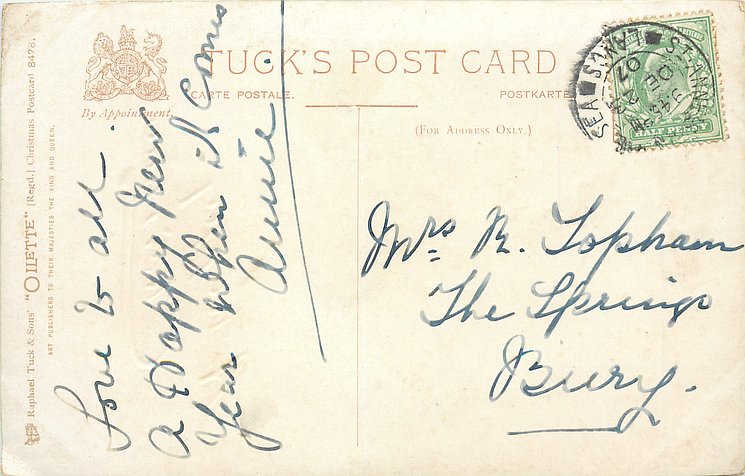 Raphael Tuck & Sons' "OILETTE" [Regd.] Christmas Postcard 8478.
ART PUBLISHERS TO THEIR MAJESTIES THE KING AND QUEEN.
By Appointment.
TUCK'S POST CARD
CARTE POSTALE.
POSTKARTE
(FOR ADDRESS ONLY.)
HALF PENNY
Love to all.
A Happy New
Year When it comes
Annie
Mrs R. Topham
The Springs
Bury.